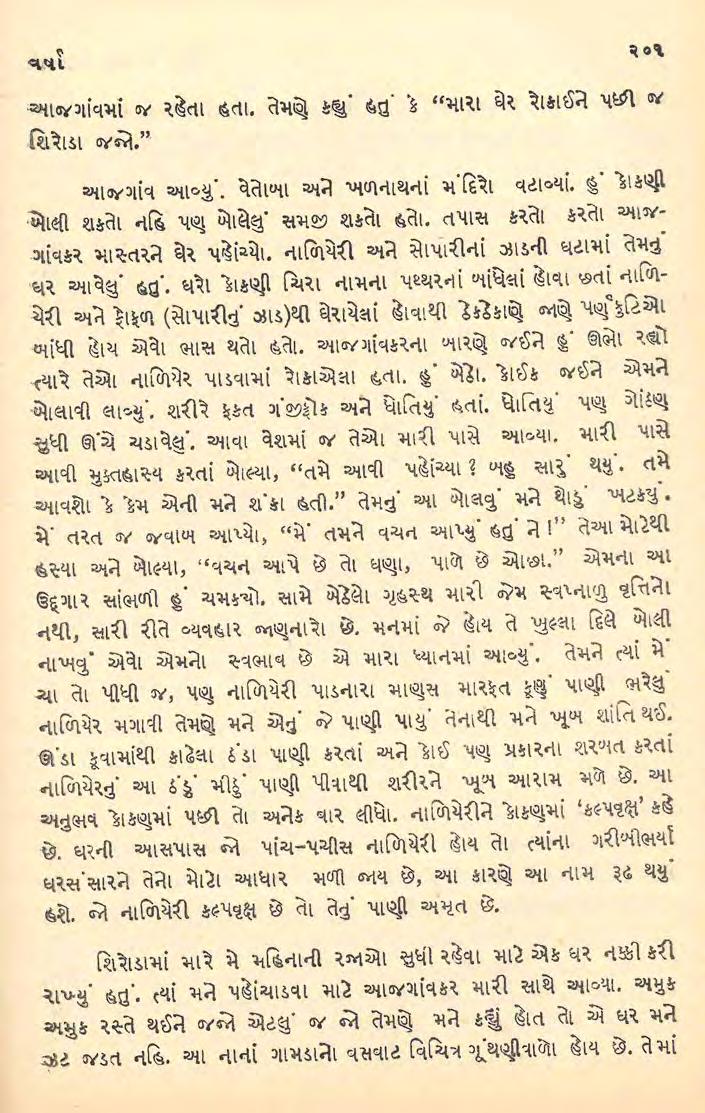 વર્ષા
૨૦૧
આજગાંવમાં જ રહેતા હતા. તેમણે કહ્યું હતું કે “મારા ઘેર રોકાઈને પછી જ
શિરોડા જજો.”
આજગાંવ આવ્યું. વેતોબા અને ખળનાથનાં મંદિરો વટાવ્યાં. હું કોંકણી
બોલી શકતો નહિ પણ બોલેલું સમજી શકતો હતો. તપાસ કરતો કરતો આજ-
ગાંવકર માસ્તરને ઘેર પહોંચ્યો. નાળિયેરી અને સોપારીનાં ઝાડની ઘટામાં તેમનું
ઘર આવેલું હતું. ઘરો કોંકણી ચિરા નામના પથ્થરનાં બાંધેલાં હોવા છતાં નાળિ-
યેરી અને ફોફળ (સોપારીનું ઝાડ)થી ઘેરાયેલાં હોવાથી ઠેકઠેકાણે જાણે પર્ણકુટિઓ
બાંધી હોય એવો ભાસ થતો હતો. આજગાંવકરના બારણે જઈને હું ઊભો રહ્યો
ત્યારે તેઓ નાળિયેર પાડવામાં રોકાએલા હતા. હું બેઠો. કોઈક જઈને એમને
બોલાવી લાવ્યું. શરીરે ફકત ગંજીફ્રોક અને ધોતિયું હતાં. ધોતિયું પણ ગોઠણ
સુધી ઊંચે ચડાવેલું. આવા વેશમાં જ તેઓ મારી પાસે આવ્યા. મારી પાસે
આવી મુક્તહાસ્ય કરતાં બોલ્યા, “તમે આવી પહોંચ્યા? બહુ સારું થયું. તમે
આવશો કે કેમ એની મને શંકા હતી.” તેમનું આ બોલવું મને થોડું ખટક્યું.
મેં તરત જ જવાબ આપ્યો, “મેં તમને વચન આપ્યું હતું ને!” તેઓ મોટેથી
હસ્યા અને બોલ્યા, “વચન આપે છે તો ઘણા, પાળે છે ઓછા.” એમના આ
ઉદ્ગાર સાંભળી હું ચમક્યો. સામે બેઠેલો ગૃહસ્થ મારી જેમ સ્વપ્નાળુ વૃત્તિનો
નથી, સારી રીતે વ્યવહાર જાણનારો છે. મનમાં જે હોય તે ખુલ્લા દિલે બોલી
નાખવું એવો એમનો સ્વભાવ છે એ મારા ધ્યાનમાં આવ્યું. તેમને ત્યાં મેં
ચા તો પીધી જ, પણ નાળિયેરી પાડનારા માણસ મારફત કૂણું પાણી ભરેલું
નાળિયેર મગાવી તેમણે મને એનું જે પાણી પાયું તેનાથી મને ખૂબ શાંતિ થઈ.
ઊંડા કૂવામાંથી કાઢેલા ઠંડા પાણી કરતાં અને કોઈ પણ પ્રકારના શરબત કરતાં
નાળિયેરનું આ ઠંડું મીઠું પાણી પીવાથી શરીરને ખૂબ આરામ મળે છે. આ
અનુભવ કોંકણમાં પછી તો અનેક વાર લીધો. નાળિયેરીને કોંકણમાં ‘કલ્પવૃક્ષ’ કહે
છે. ઘરની આસપાસ જો પાંચ-પચીસ નાળિયેરી હોય તો ત્યાંના ગરીબીભર્યા
ઘરસંસારને તેનો મોટો આધાર મળી જાય છે, આ કારણે આ નામ રૂઢ થયું
હશે. જો નાળિયેરી કલ્પવૃક્ષ છે તો તેનું પાણી અમૃત છે.
શિરોડામાં મારે મે મહિનાની રજાઓ સુધી રહેવા માટે એક ઘર નક્કી કરી
રાખ્યું હતું. ત્યાં મને પહોંચાડવા માટે આજગાંવકર મારી સાથે આવ્યા. અમુક
અમુક રસ્તે થઈને જજો એટલું જ જો તેમણે મને કહ્યું હોત તો એ ઘર મને
ઝટ જડત નહિ. આ નાનાં ગામડાનો વસવાટ વિચિત્ર ગૂંથણીવાળો હોય છે. તેમાં